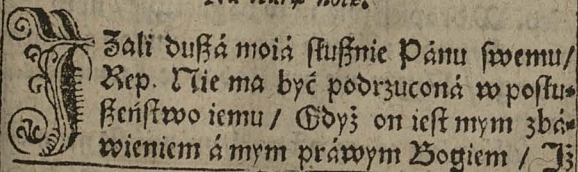 IZali dußá moiá slußnie Pánu swemu/
Rep. Nie ma być podrzuconá w poslu-
ßeństwo iemu / Gdyż on iest mym zbá-
wieniem á mym práwym Bogiem / Iż